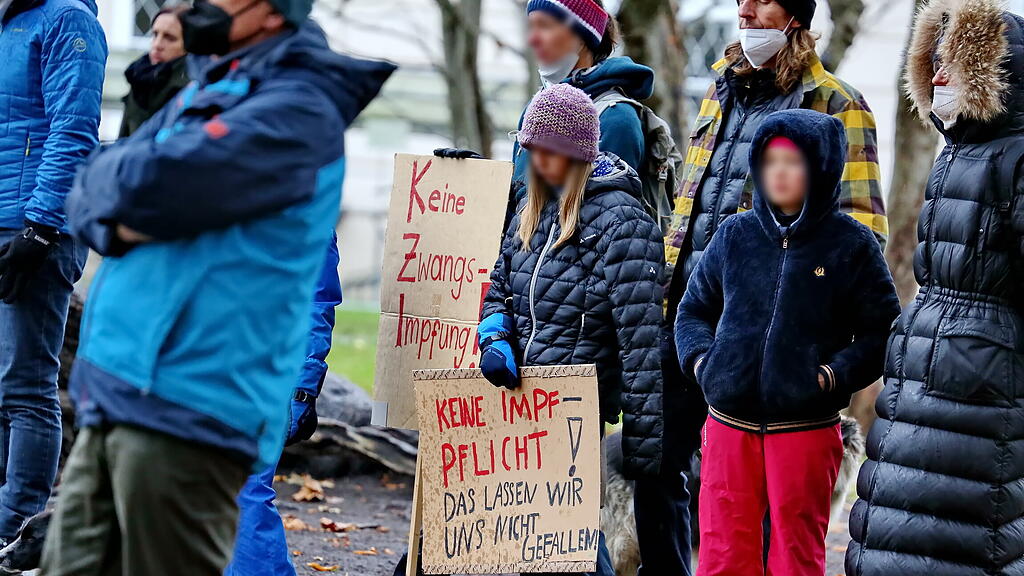 Keine
Zwangs-
Impfung!
KEINE IMPF-
PFLICHT!
DAS LASSEN WIR
UNS NICHT
GEFALLEN